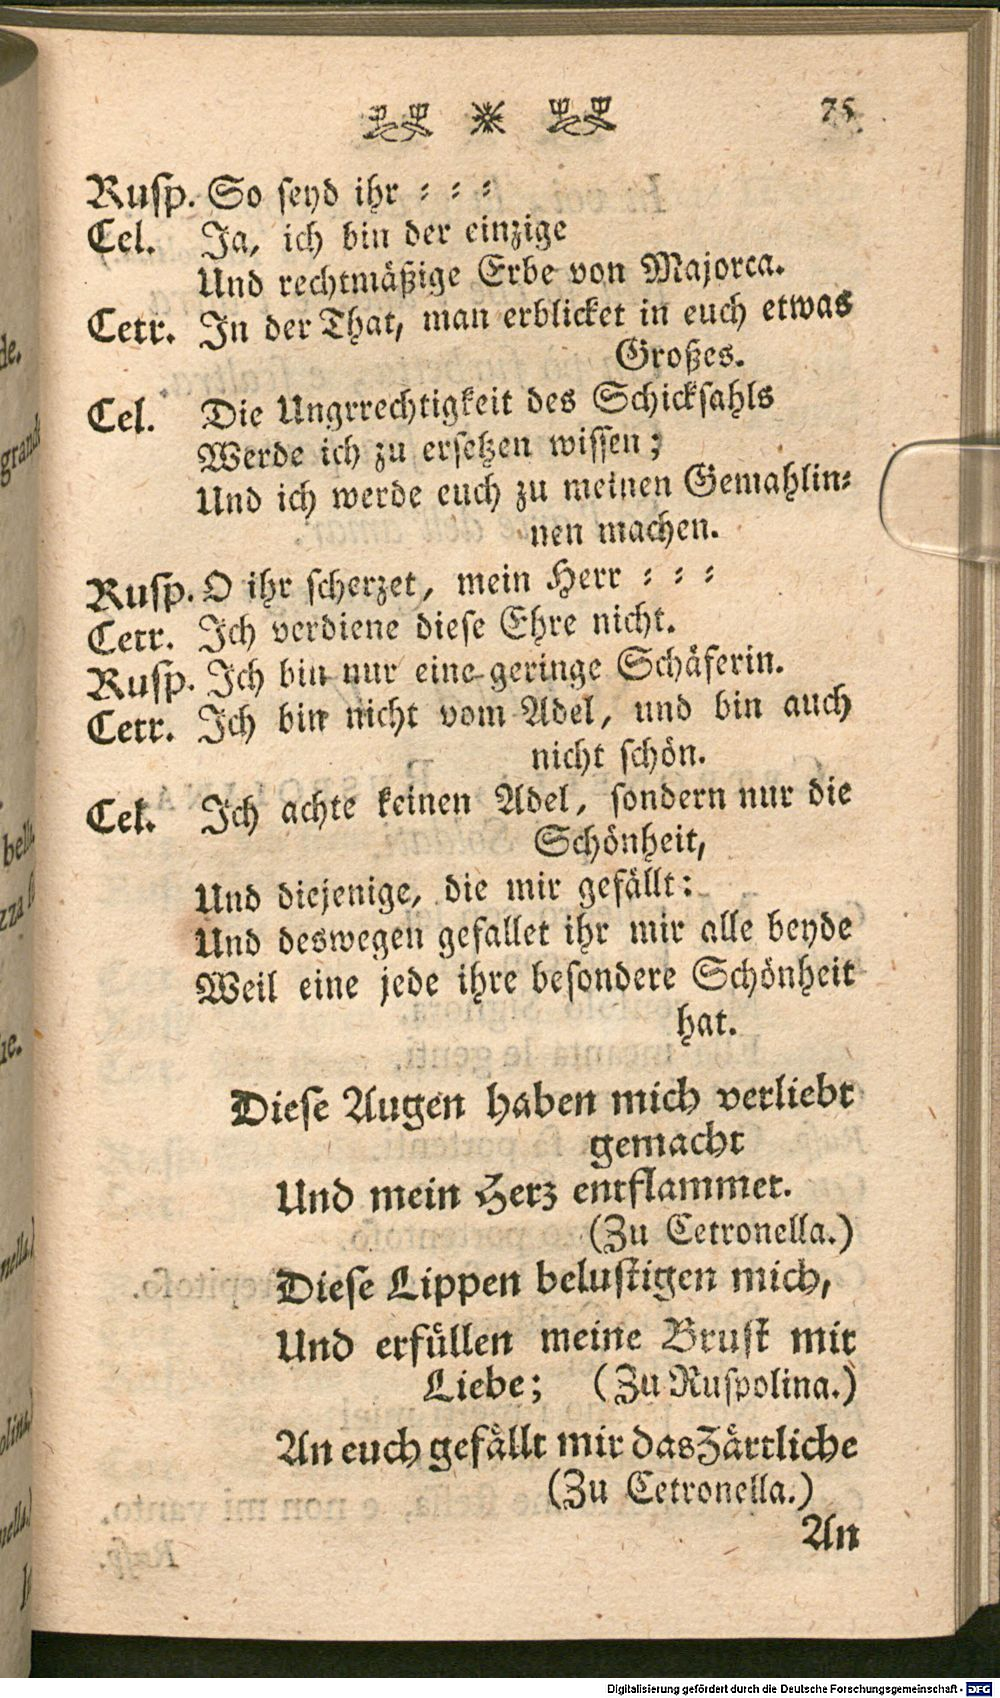 75
Rusp. So seyd ihr ⸗ ⸗ ⸗
Cel. Ja, ich bin der einzige
Und rechtmäßige Erbe von Majorca.
Cetr. In der That, man erblicket in euch etwas
Großes.
Cel. Die Ungrrechtigkeit des Schicksahls
Werde ich zu ersetzen wissen;
Und ich werde euch zu meinen Gemahlin⸗
nen machen.
Rusp. O ihr scherzet, mein Herr ⸗ ⸗ ⸗
Cetr. Ich verdiene diese Ehre nicht.
Rusp. Ich bin nur eine geringe Schäferin.
Cetr. Ich bin nicht vom Adel, und bin auch
nicht schön.
Cel. Ich achte keinen Adel, sondern nur die
Schönheit,
Und diejenige, die mir gefällt:
Und deswegen gefallet ihr mir alle beyde
Weil eine jede ihre besondere Schönheit
hat.
Diese Augen haben mich verliebt
gemacht
Und mein Herz entflammet.
(Zu Cetronella.)
Diese Lippen belustigen mich,
Und erfüllen meine Brust mit
Liebe; (Zu Ruspolina.)
An euch gefällt mir das Zärtliche
(Zu Cetronella.)
An
de.
grande
bella
zza
ue.
nella.)
olina.)
nella.)
Digitalisierung gefördert durch die Deutsche Forschungsgemeinschaft - DFG